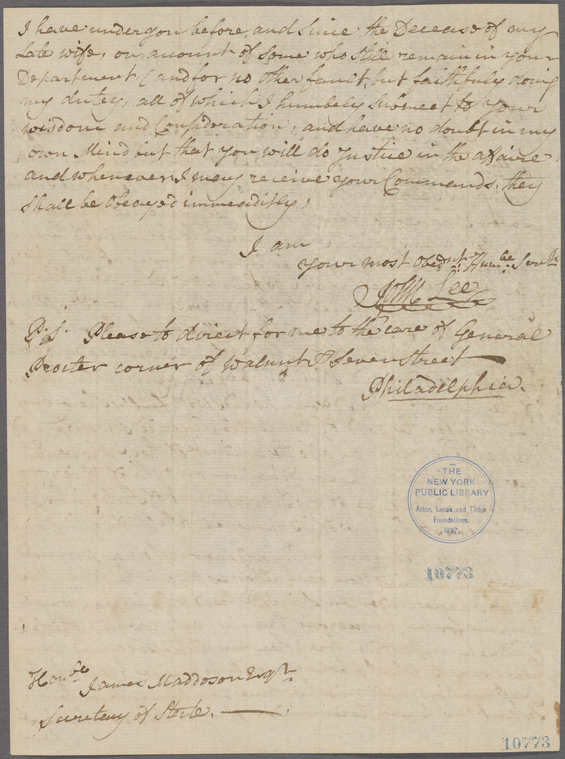 I have undergon before, and Since the Decease of my
Late wife, on account of Some who Still remain in your
Department (and for no other fault, but faithfuly doing
my dutey, all of which I humbely Submeet to your
wisdom and Consideration, and have no doubt in my
own Mind but that you will do Justice in the affaire
and whenever I may receive your Commands, they
Shall be Obeay'd immeaditly;
I am
Your most Obednt Humbe Servt
John Lee
P:S: Please to direct for me to the care of General
Procter corner of Walnut & Seven Street
Philadelphia.
THE
NEW YORK
PUBLIC LIBRARY
Astor, Lenox and Tilden
Foundations.
1897
10773
Honble
James Maddoson Esqr
Secretary of State.
10773